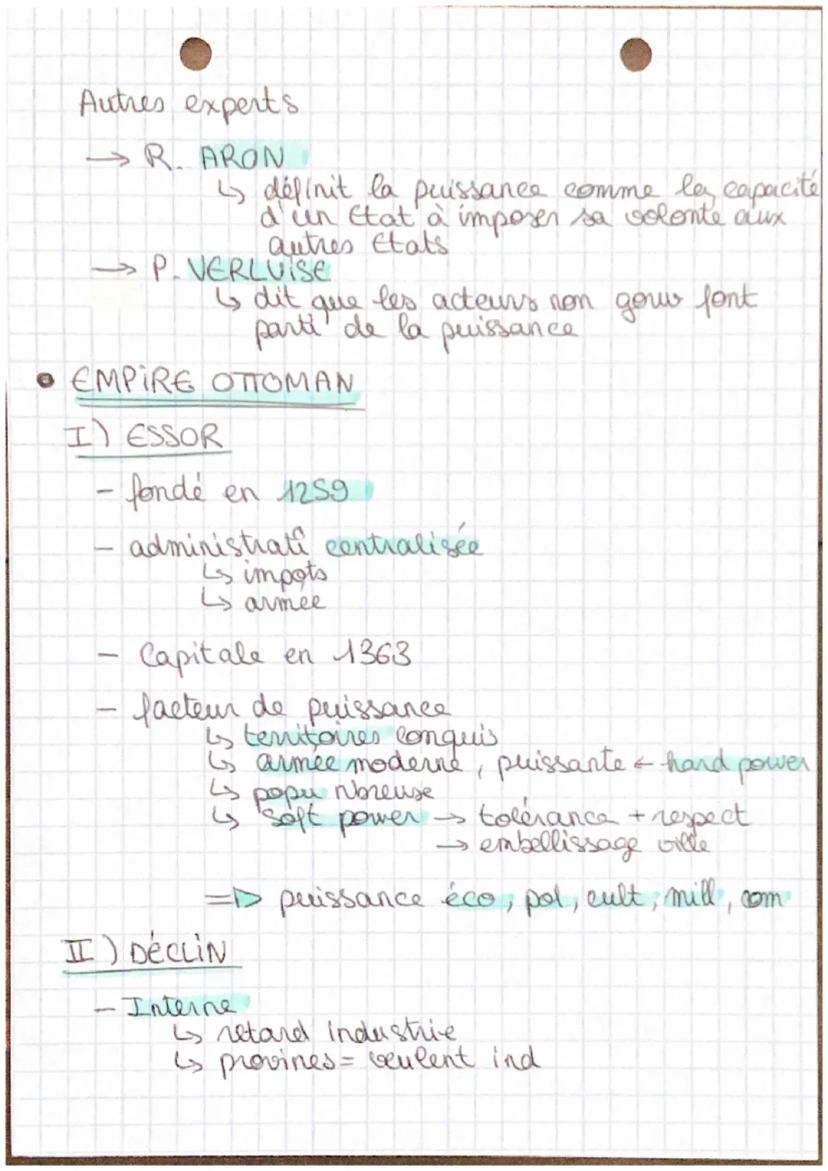 Autres experts
→ R. ARON
↳ définit la puissance comme la capacité
d'un Etat à imposer sa volonte aux
autres Etats
→ P. VERLUISE
↳ dit que les acteurs non gouv font
parti de la puissance
• EMPIRE OTTOMAN
I) ESSOR
- fondé en 1259
- administratº centralisée
↳ impots
↳ armée
- Capitale en 1363
- facteur de puissance
↳ territoires conquis
↳ armée moderne, puissante ← hard power
↳ popu nbreuse
↳ soft power → tolérance + respect
→ embellissage ville
=▷ puissance éco, pol, cult, mill, com
II) DÉCLIN
- Interne
↳ retard industrie
↳ provines = veulent ind